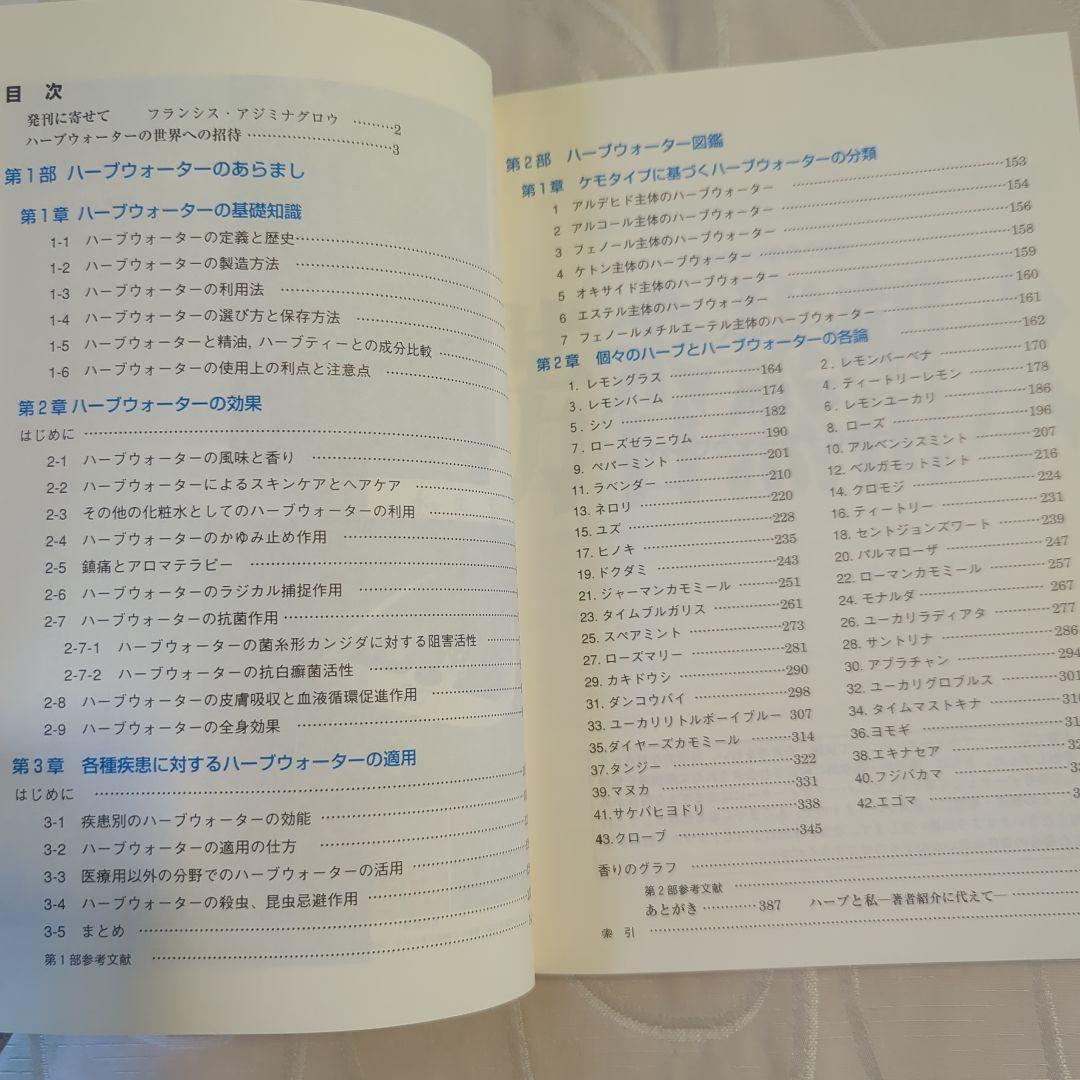 目 次
発刊に寄せて フランシス・アジミナグロウ ………2
ハーブウォーターの世界への招待 ……………………………3
第1部 ハーブウォーターのあらまし
第1章 ハーブウォーターの基礎知識
1-1 ハーブウォーターの定義と歴史
1-2 ハーブウォーターの製造方法
1-3 ハーブウォーターの利用法
1-4 ハーブウォーターの選び方と保存方法
1-5 ハーブウォーターと精油, ハーブティーとの成分比較
1-6 ハーブウォーターの使用上の利点と注意点
第2章 ハーブウォーターの効果
はじめに
2-1 ハーブウォーターの風味と香り
2-2 ハーブウォーターによるスキンケアとヘアケア
2-3 その他の化粧水としてのハーブウォーターの利用
2-4 ハーブウォーターのかゆみ止め作用
2-5 鎮痛とアロマテラピー
2-6 ハーブウォーターのラジカル捕捉作用
2-7 ハーブウォーターの抗菌作用
2-7-1 ハーブウォーターの菌糸形カンジダに対する阻害活性
2-7-2 ハーブウォーターの抗白癬菌活性
2-8 ハーブウォーターの皮膚吸収と血液循環促進作用
2-9 ハーブウォーターの全身効果
第3章 各種疾患に対するハーブウォーターの適用
はじめに
3-1 疾患別のハーブウォーターの効能
3-2 ハーブウォーターの適用の仕方
3-3 医療用以外の分野でのハーブウォーターの活用
3-4 ハーブウォーターの殺虫、昆虫忌避作用
3-5 まとめ
第1部参考文献
第2部 ハーブウォーター図鑑
第1章 ケモタイプに基づくハーブウォーターの分類 ……………153
1 アルデヒド主体のハーブウォーター ……………154
2 アルコール主体のハーブウォーター ……………156
3 フェノール主体のハーブウォーター ……………158
4 ケトン主体のハーブウォーター ……………159
5 オキサイド主体のハーブウォーター ……………160
6 エステル主体のハーブウォーター ……………161
7 フェノールメチルエーテル主体のハーブウォーター ……………162
第2章 個々のハーブとハーブウォーターの各論
1. レモングラス ……………164 2. レモンバーベナ ……………170
3. レモンバーム ……………174 4. ティートリーレモン ……………178
5. シソ ……………182 6. レモンユーカリ ……………186
7. ローズゼラニウム ……………190 8. ローズ ……………196
9. ペパーミント ……………201 10. アルベンシスミント ……………207
11. ラベンダー ……………210 12. ベルガモットミント ……………216
13. ネロリ ……………220 14. クロモジ ……………224
15. ユズ ……………228 16. ティートリー ……………231
17. ヒノキ ……………235 18. セントジョンズワート ………239
19. ドクダミ ……………243 20. パルマローザ ……………247
21. ジャーマンカモミール ………251 22. ローマンカモミール ………257
23. タイムブルガリス ……………261 24. モナルダ ……………267
25. スペアミント ……………273 26. ユーカリラディアタ ………277
27. ローズマリー ……………281 28. サントリナ ……………286
29. カキドウシ ……………290 30. アブラチャン ……………294
31. ダンコウバイ ……………298 32. ユーカリグロブルス ………301
33. ユーカリリトルボーイブルー 307 34. タイムマストキナ
35. ダイヤーズカモミール ………314 36. ヨモギ
37. タンジー ……………322 38. エキナセア
39. マヌカ ……………331 40. フジバカマ
41. サケバヒヨドリ ……………338 42. エゴマ
43. クローブ ……………345
香りのグラフ
第2部参考文献
あとがき …………387 ハーブと私―著者紹介に代えて―
索 引